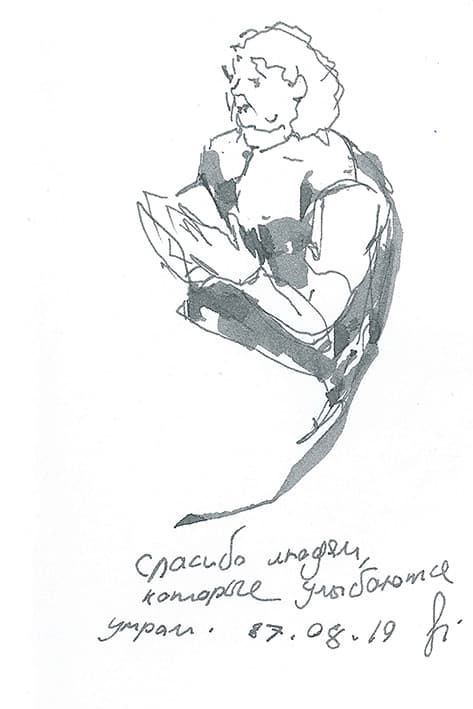 спасибо людям,
которые улыбаются
утрам. 07.08.19